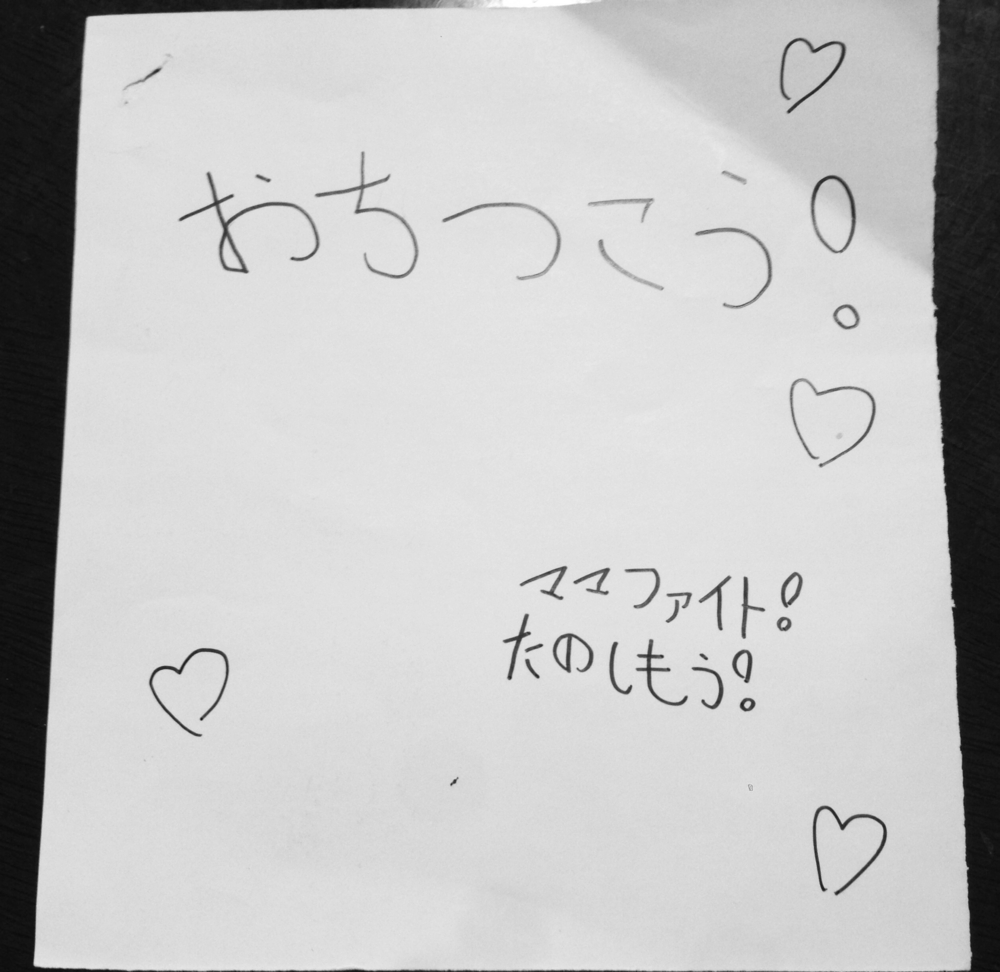 おちつこう!
ママファイト!
たのしもう!